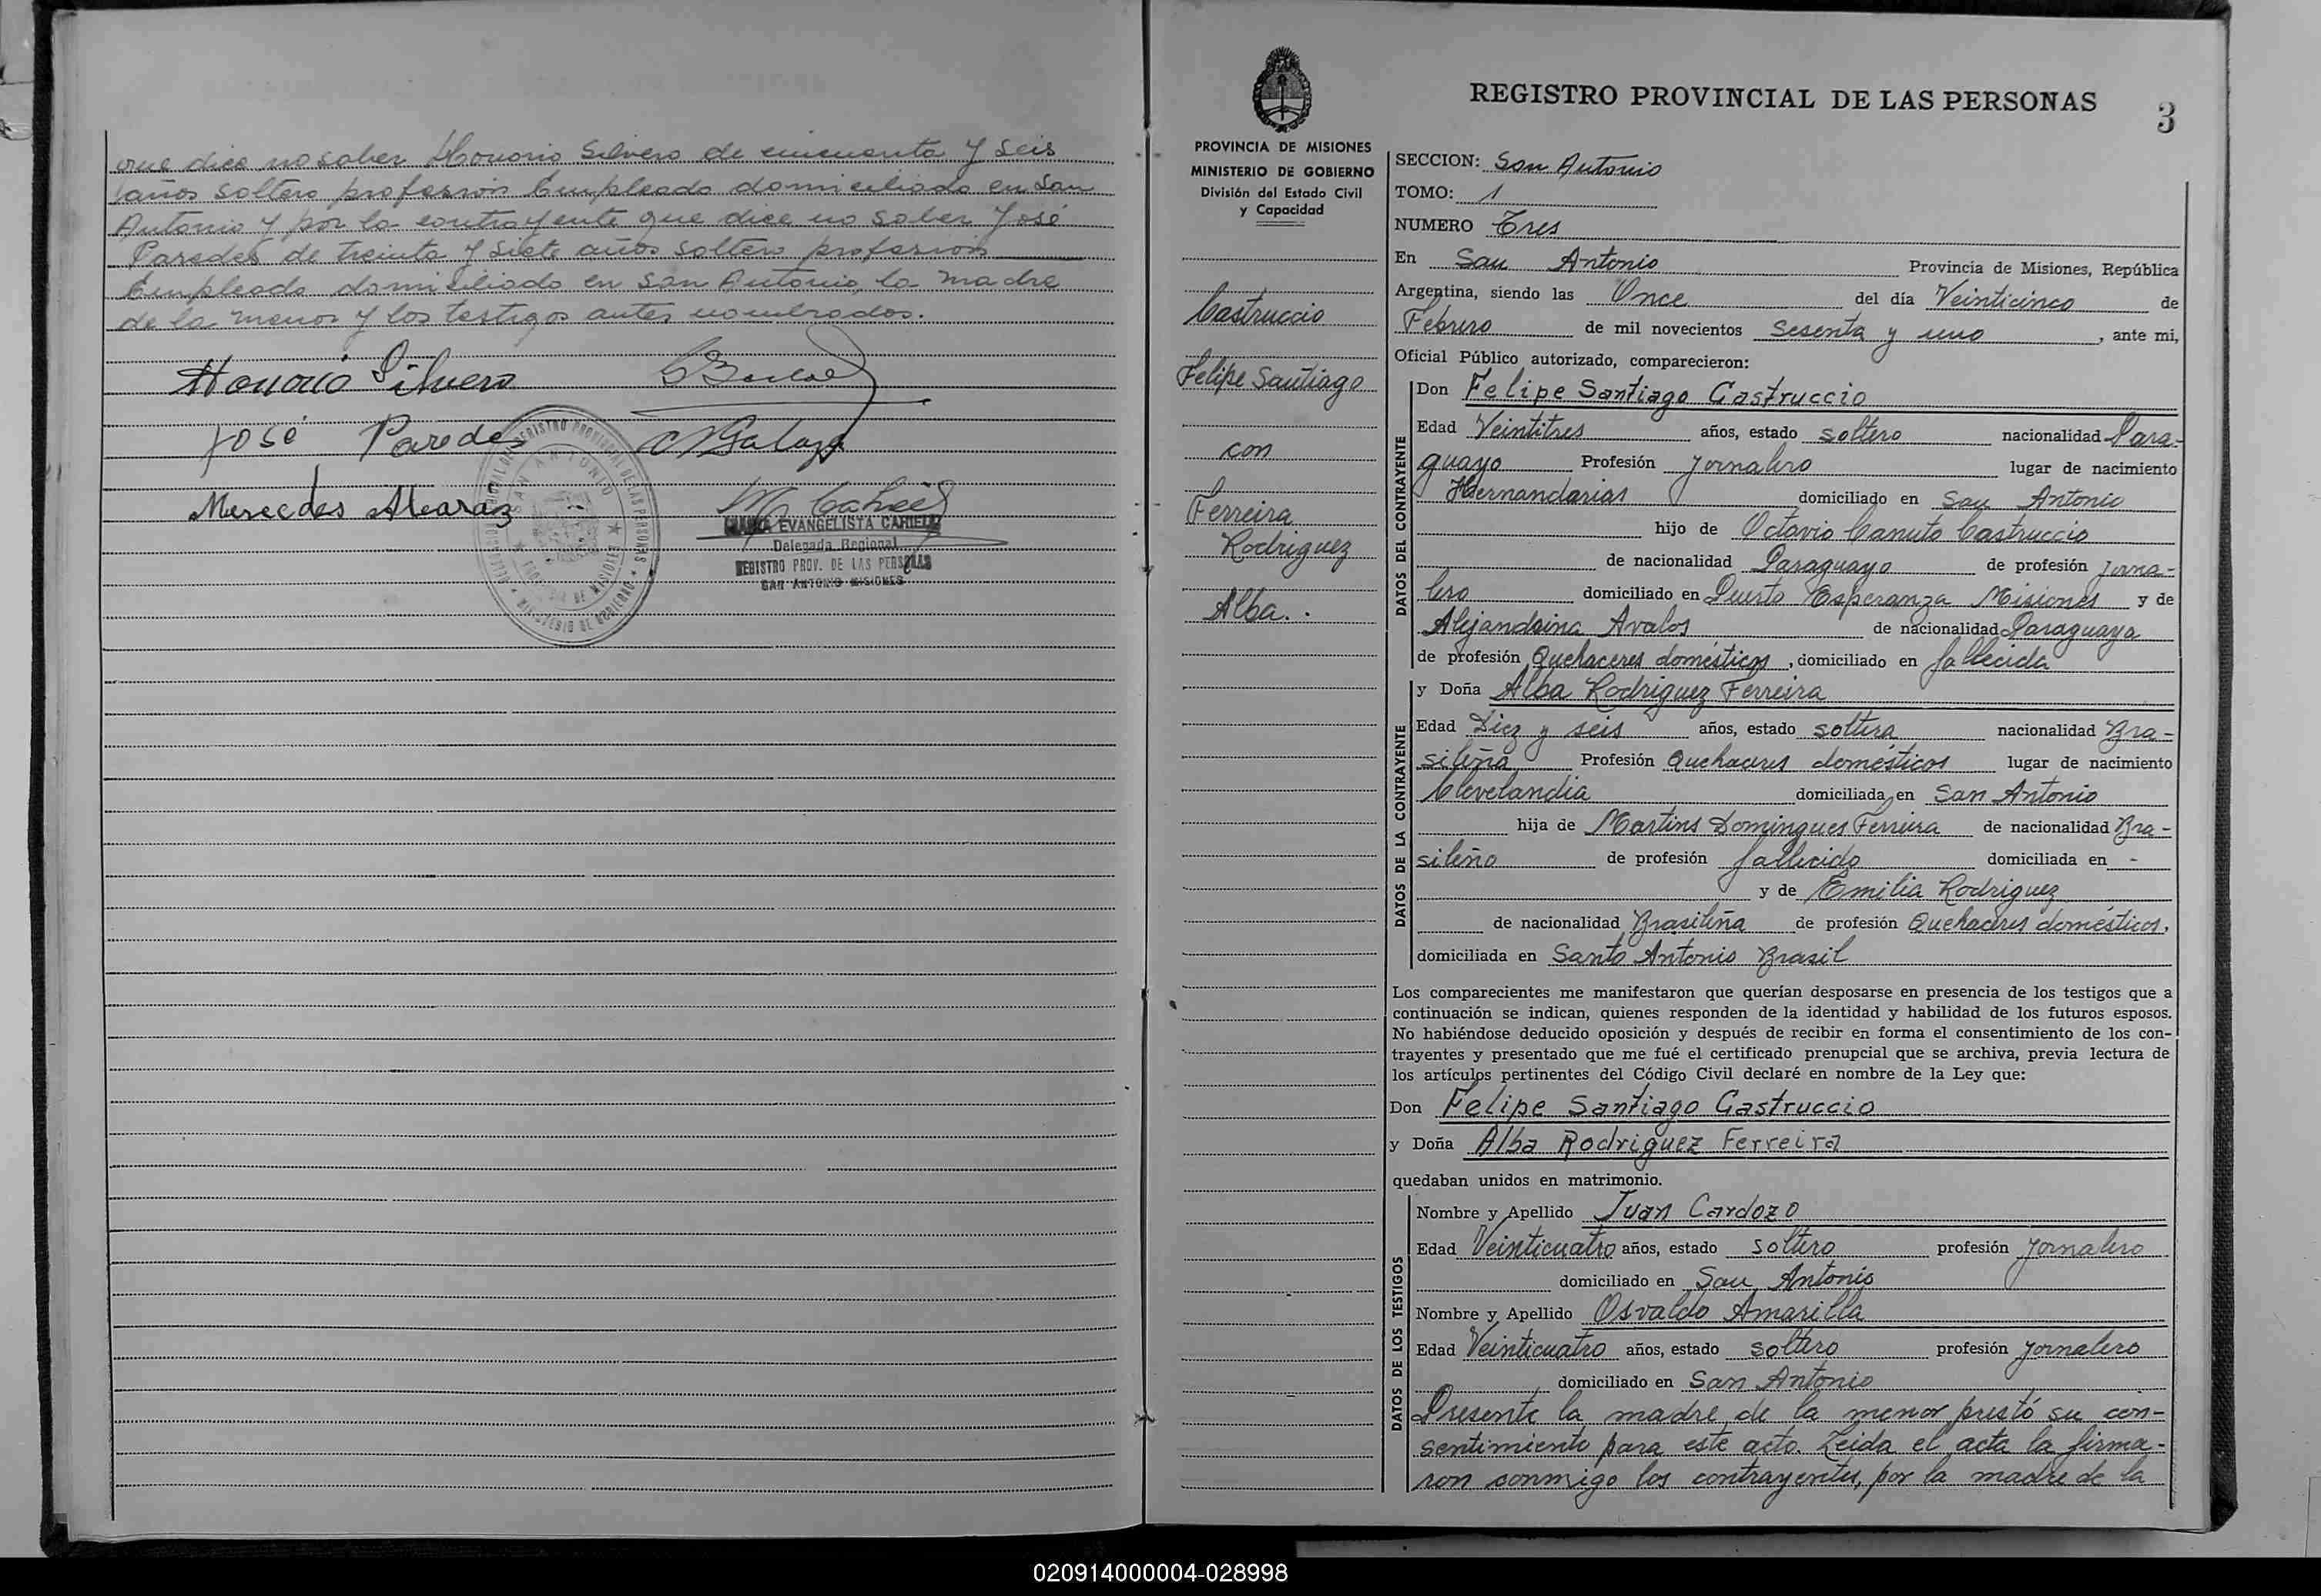 que dice no saber Honorio Silvero de cincuenta y seis
años soltero profesión Empleado domiciliado en San
Antonio y por la contrayente que dice no saber José
Paredes de treinta y siete años soltero profesión
Empleado domiciliado en San Antonio, la madre
de la menor y los testigos antes nombrados.
Honorio Silvero
José Paredes
Mercedes Alcaraz
EVANGELISTA
Delegada Regional
REGISTRO PROV. DE LAS PERSONAS
SAN ANTONIO MISIONES
PROVINCIA DE MISIONES
MINISTERIO DE GOBIERNO
División del Estado Civil
y Capacidad
Castruccio
Felipe Santiago
con
Ferreira
Rodriguez
Alba.
REGISTRO PROVINCIAL DE LAS PERSONAS
3
SECCION: San Antonio
TOMO: 1
NUMERO Tres
En San Antonio Provincia de Misiones, República
Argentina, siendo las Once del día Veinticinco de
Febrero de mil novecientos Sesenta y uno, ante mi,
Oficial Público autorizado, comparecieron:
DATOS DEL CONTRAYENTE
Don Felipe Santiago Castruccio
Edad Veintitres años, estado soltero nacionalidad Para-
guayo Profesión Jornalero lugar de nacimiento
Hernandarias domiciliado en San Antonio
hijo de Octavio Canuto Castruccio
de nacionalidad Paraguayo de profesión Jorna-
lero domiciliado en Puerto Esperanza Misiones y de
Alejandrina Avalos de nacionalidad Paraguaya
de profesión Quehaceres domésticos, domiciliado en fallecida
DATOS DE LA CONTRAYENTE
y Doña Alba Rodriguez Ferreira
Edad Diez y seis años, estado soltera nacionalidad Bra-
sileña Profesión Quehaceres domésticos lugar de nacimiento
Clevelandia domiciliada en San Antonio
hija de Martins Domingues Ferreira de nacionalidad Bra-
sileño de profesión fallecido domiciliada en -
y de Emilia Rodriguez
de nacionalidad Brasileña de profesión Quehaceres domésticos,
domiciliada en Santo Antonio Brasil
Los comparecientes me manifestaron que querían desposarse en presencia de los testigos que a
continuación se indican, quienes responden de la identidad y habilidad de los futuros esposos.
No habiéndose deducido oposición y después de recibir en forma el consentimiento de los con-
trayentes y presentado que me fué el certificado prenupcial que se archiva, previa lectura de
los artículos pertinentes del Código Civil declaré en nombre de la Ley que:
Don Felipe Santiago Castruccio
y Doña Alba Rodriguez Ferreira
quedaban unidos en matrimonio.
DATOS DE LOS TESTIGOS
Nombre y Apellido Juan Cardozo
Edad Veinticuatro años, estado soltero profesión Jornalero
domiciliado en San Antonio
Nombre y Apellido Osvaldo Amarilla
Edad Veinticuatro años, estado soltero profesión Jornalero
domiciliado en San Antonio
Presente la madre de la menor prestó su con-
sentimiento para este acto. Leida el acta la firma-
ron conmigo los contrayentes, por la madre de la
020914000004-028998